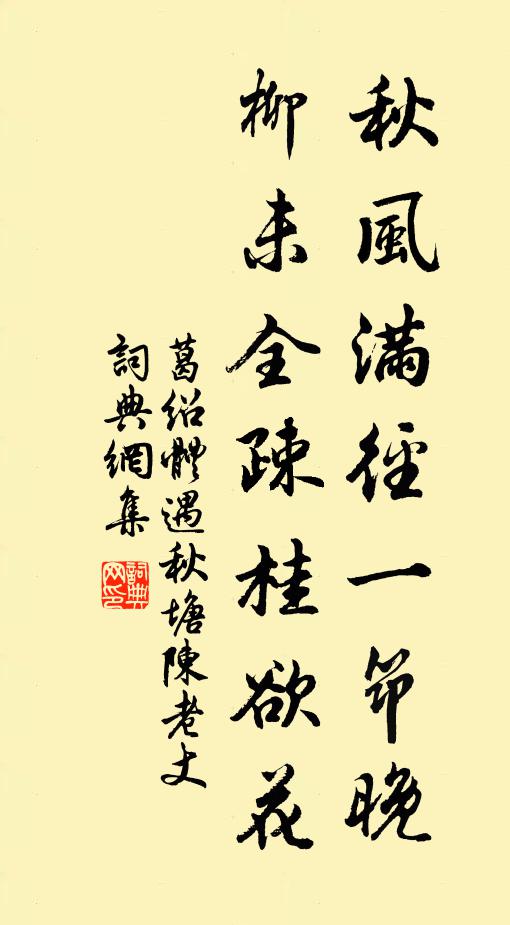 秋風滿徑一筇晚
柳未全疎桂欲花
葛紹體遇秋塘陳老丈
詞典網集
詞典網印